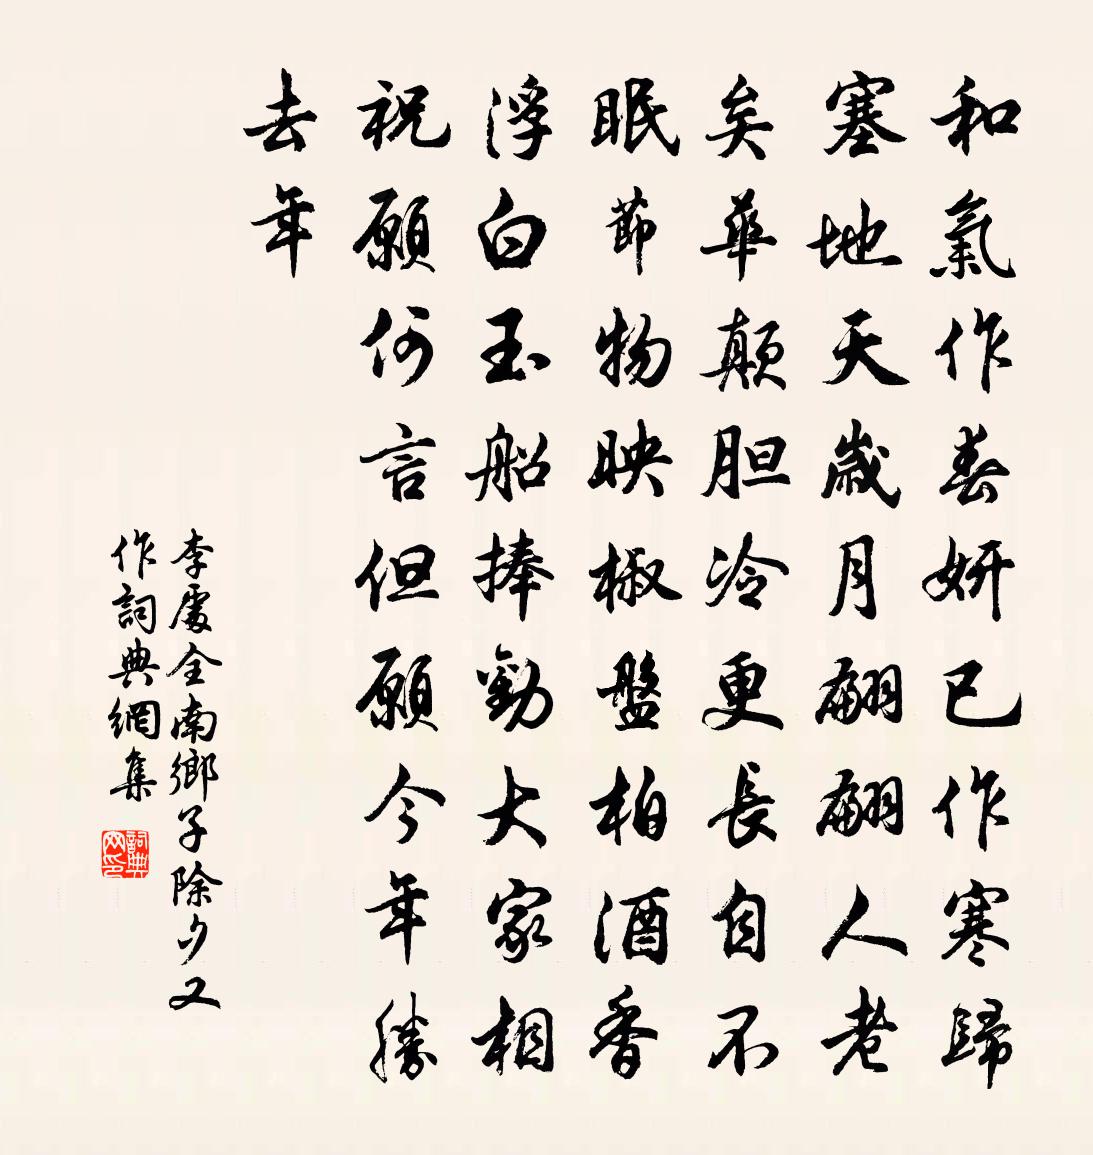 和氣作春妍已作寒歸
塞地天歲月翩翩人老
矣華顛胆冷更長自不
眠節物映椒盤柏酒香
浮白玉船捧勸大家相
祝願何言但願今年勝
去年
李處全南鄉子除夕又
作詞典網集
詞典网印